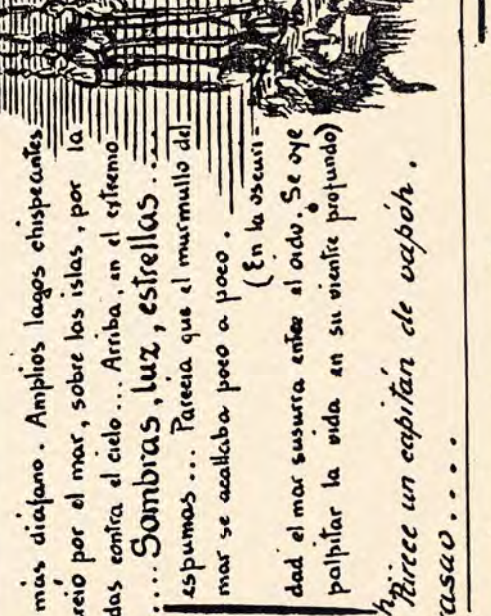 más diáfano. Amplios lagos chispeantes
reció por el mar, sobre las islas, por la
das contra el cielo... Arriba, en el extremo
.... Sombras, luz, estrellas....
espumas... Parecia que el murmullo del
mar se acallaba poco a poco.
(En la oscuri-
dad el mar susurra entre el oido. Se oye
palpitar la vida en su vientre profundo)
Parece un capitán de vapóh.
asao....